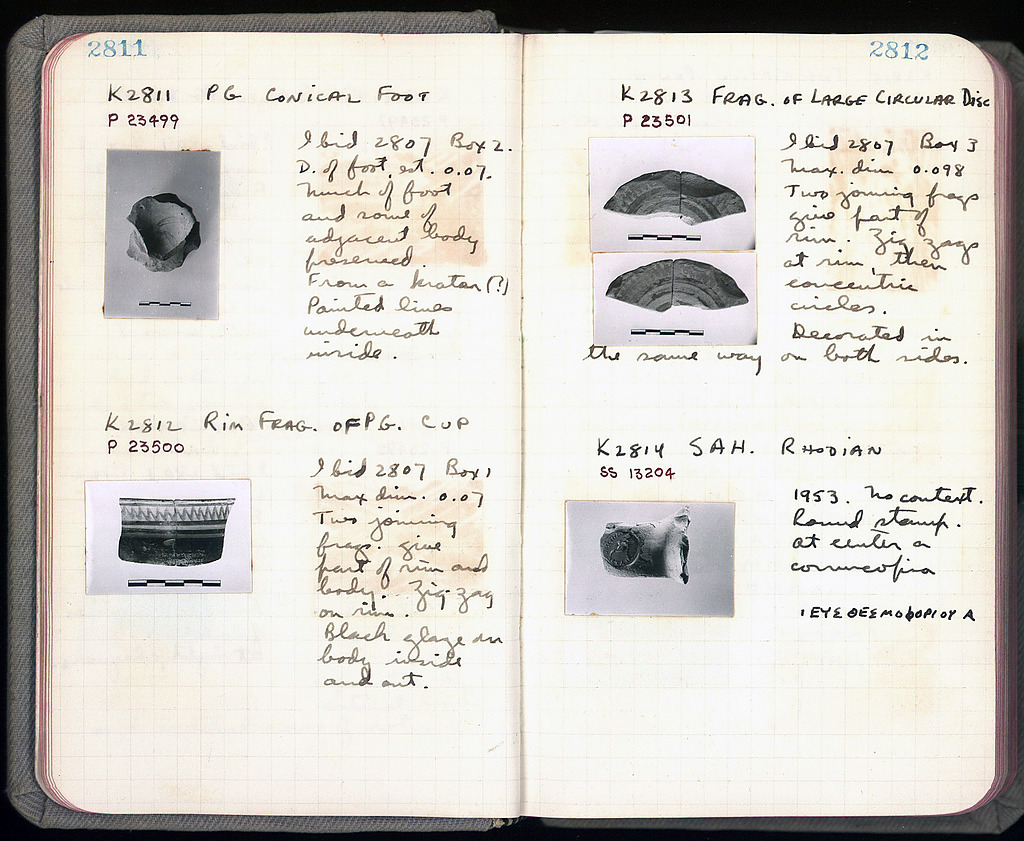 2811
K2811 PG CONICAL FOOT
P 23499
Ibid 2807 Box 2.
D. of foot, est. 0.07.
Much of foot
and some of
adjacent body
preserved.
From a krater (?)
Painted lines
underneath
inside.
K2812 RIM FRAG. OF PG. CUP
P 23500
Ibid 2807 Box 1
Max dim. 0.07
Two joining
frags. give
part of rim and
body. Zig zag
on rim.
Black glaze on
body inside
and out.
2812
K2813 FRAG. OF LARGE CIRCULAR DISC
P 23501
Ibid 2807 Box 3
Max. dim 0.098
Two joining frags
give part of
rim. Zig zags
at rim, then
concentric
circles.
Decorated in
the same way on both sides.
K2814 SAH. RHODIAN
SS 13204
1953. No context.
Round stamp.
at center a
cornucopia